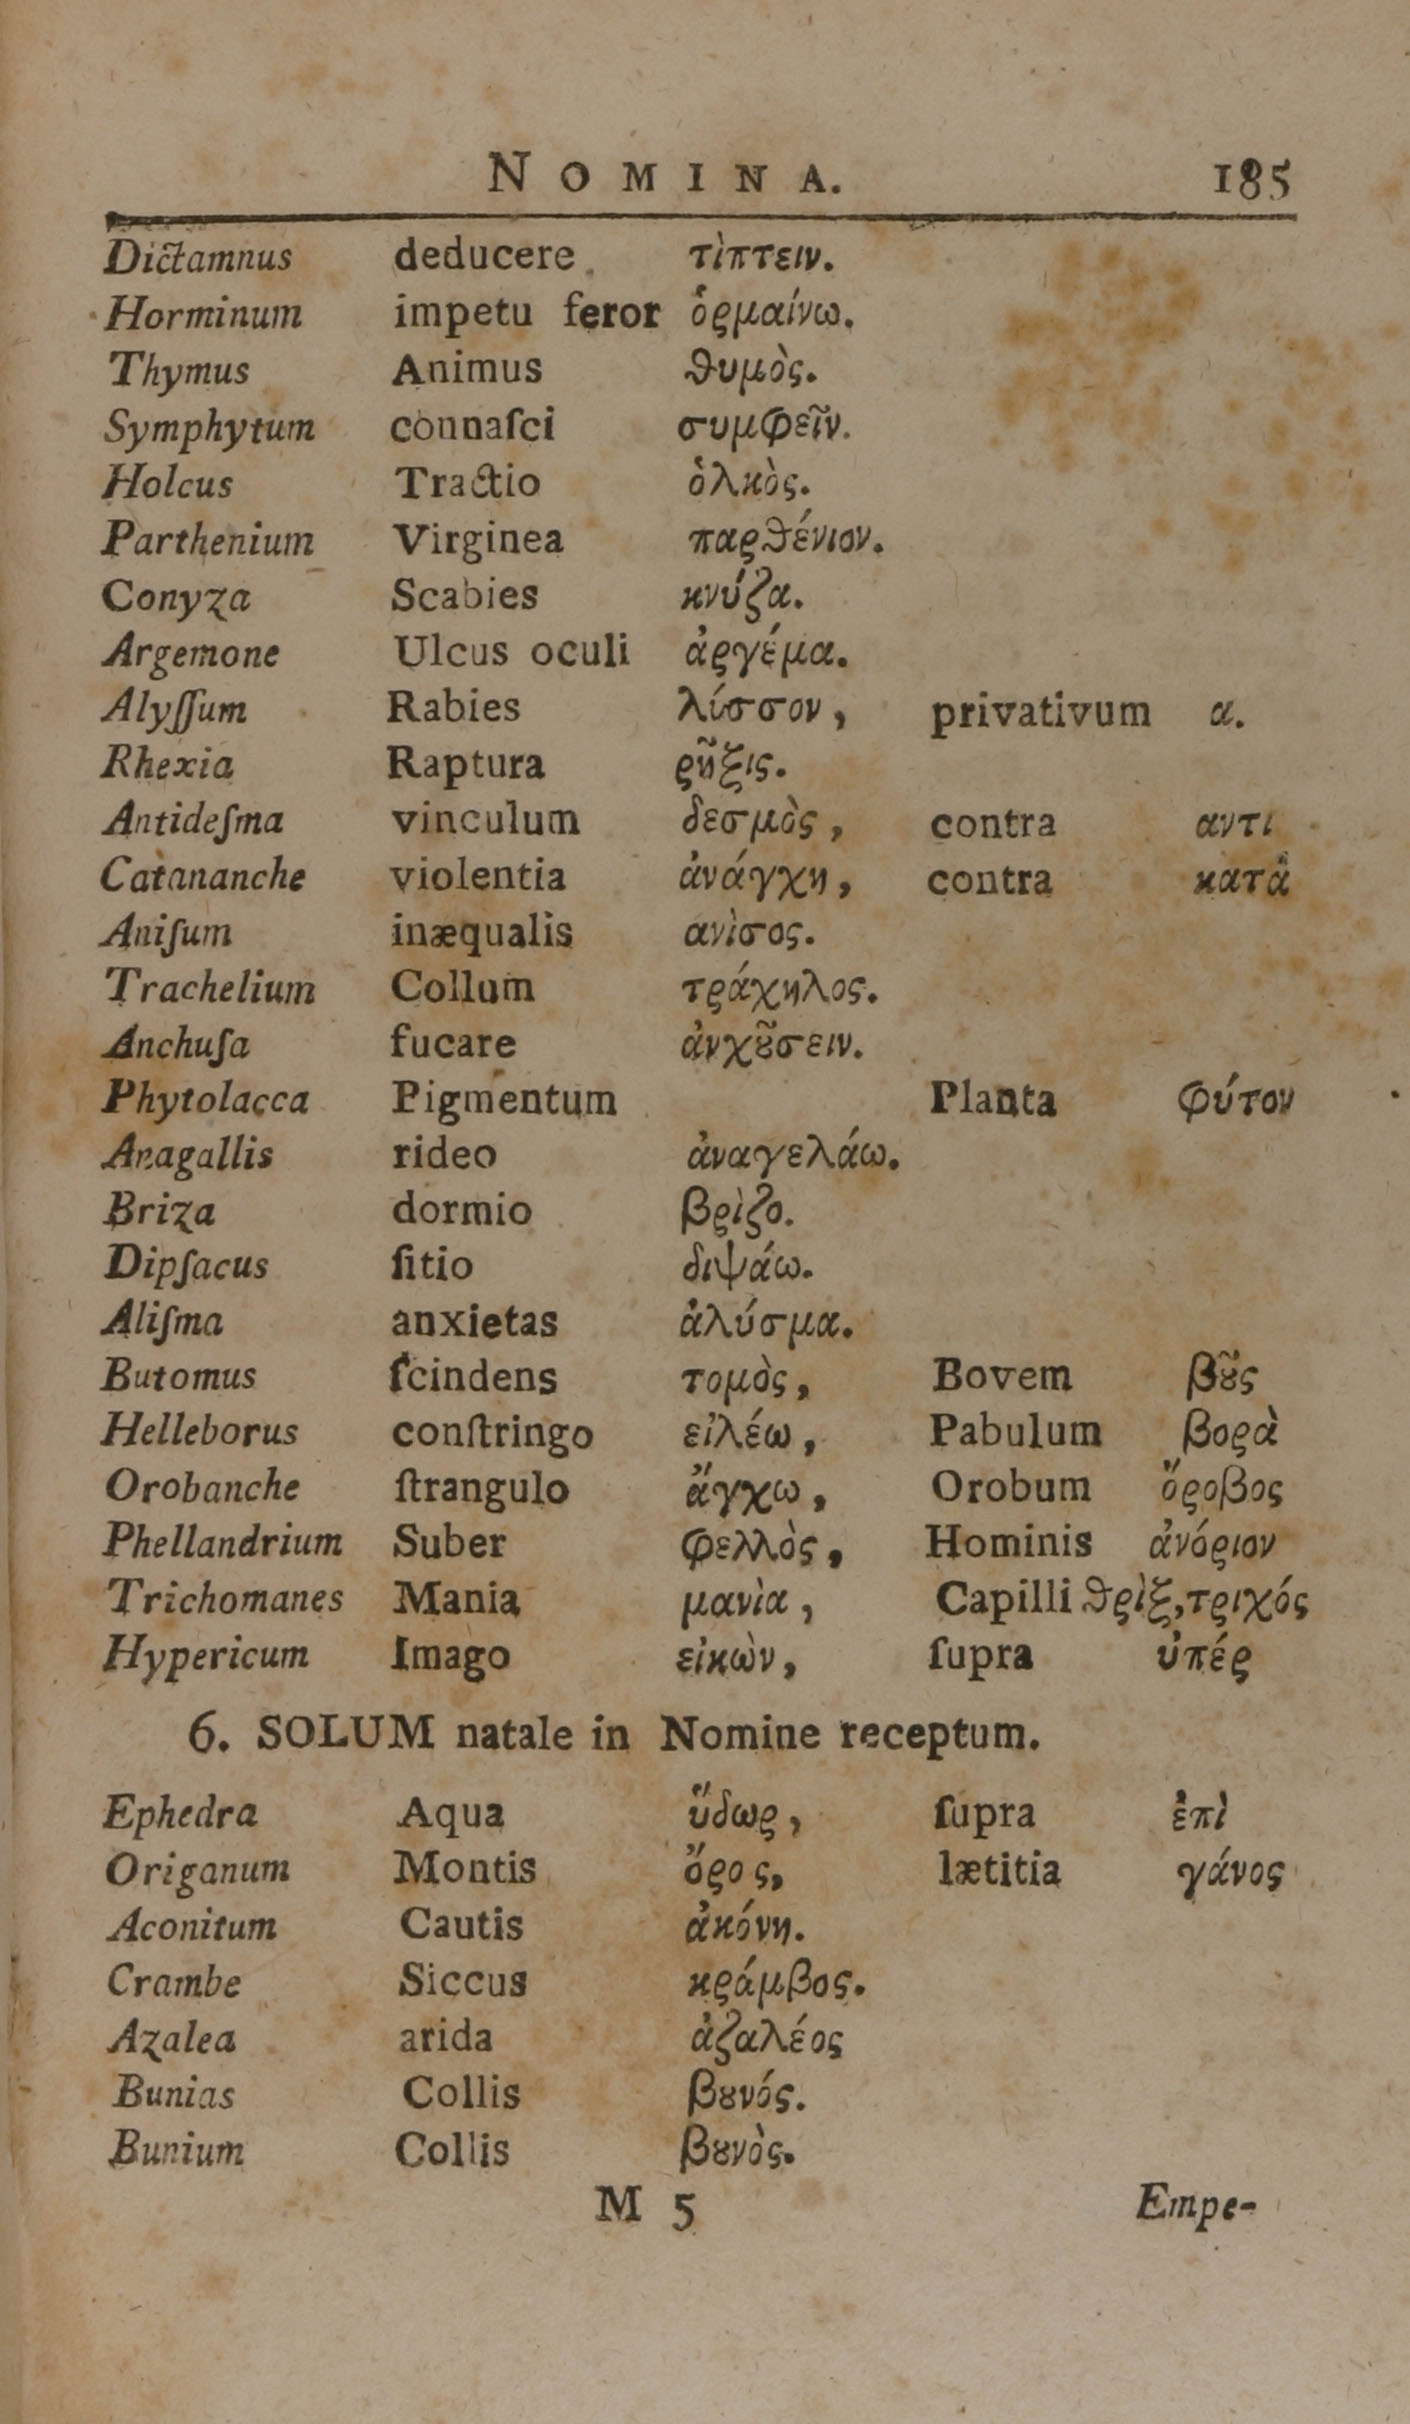 NOMINA. 185
Dictamnus deducere τὶπτειν.
Horminum impetu feror ὁρμαίνω.
Thymus Animus θυμὸς.
Symphytum connaſci συμφεῖν.
Holcus Tractio ὁλκὸς.
Parthenium Virginea παρθένιον.
Conyza Scabies κνύζα.
Argemone Ulcus oculi ἀργέμα.
Alyſſum Rabies λίσσον, privativum α.
Rhexia Raptura ρῆξις.
Antideſma vinculum δεσμὸς, contra αντι
Catananche violentia ἀνάγχη, contra κατὰ
Aniſum inæqualis ανὶσος.
Trachelium Collum τράχηλος.
Anchuſa fucare ἀνχȣ͂σειν.
Phytolacca Pigmentum Planta φύτον
Anagallis rideo ἀναγελάω.
Briza dormio βρὶζο.
Dipſacus ſitio διψάω.
Aliſma anxietas ἀλύσμα.
Butomus ſcindens τομὸς, Bovem βȣ͂ς
Helleborus conſtringo εἰλέω, Pabulum βορὰ
Orobanche ſtrangulo ἄγχω, Orobum ὄροβος
Phellandrium Suber φελλὸς, Hominis ἀνόριον
Trichomanes Mania μανὶα, Capilli θρὶξ, τριχός
Hypericum Imago εἰκὼν, ſupra ὑπέρ
6. SOLUM natale in Nomine receptum.
Ephedra Aqua ὕδωρ, ſupra ἐπὶ
Origanum Montis ὄρος, lætitia γάνος
Aconitum Cautis ἀκόνη.
Crambe Siccus κράμβος.
Azalea arida ἀζαλέος
Bunias Collis βȣνός.
Bunium Collis βȣνὸς.
M 5 Empe-